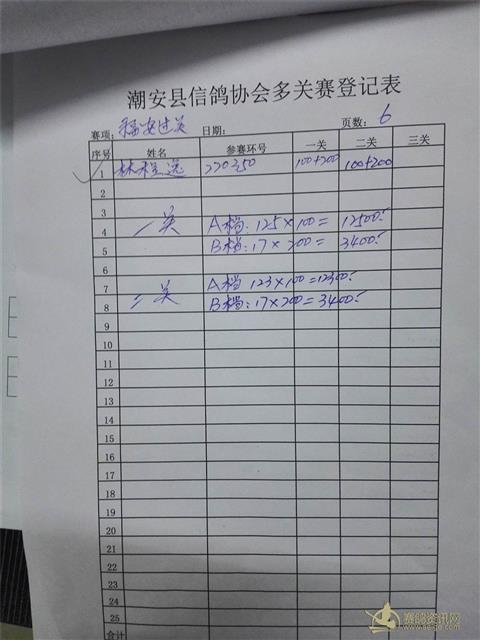 潮安县信鸽协会多关赛登记表
赛项: 福安过关 日期: 页数: 6
序号 姓名 参赛环号 一关 二关 三关
1 林 逸 220350 100+200 100+200
2
3
4 一关 A档:125×100= 12500.
5 B档:17×200= 3400.
6
7 二关 A档 123×100=12300.
8 B档:17×200=3400.
9
10
11
12
13
14
15
16
17
18
19
20
21
22
23
24
25
合计
赛鸽资讯网